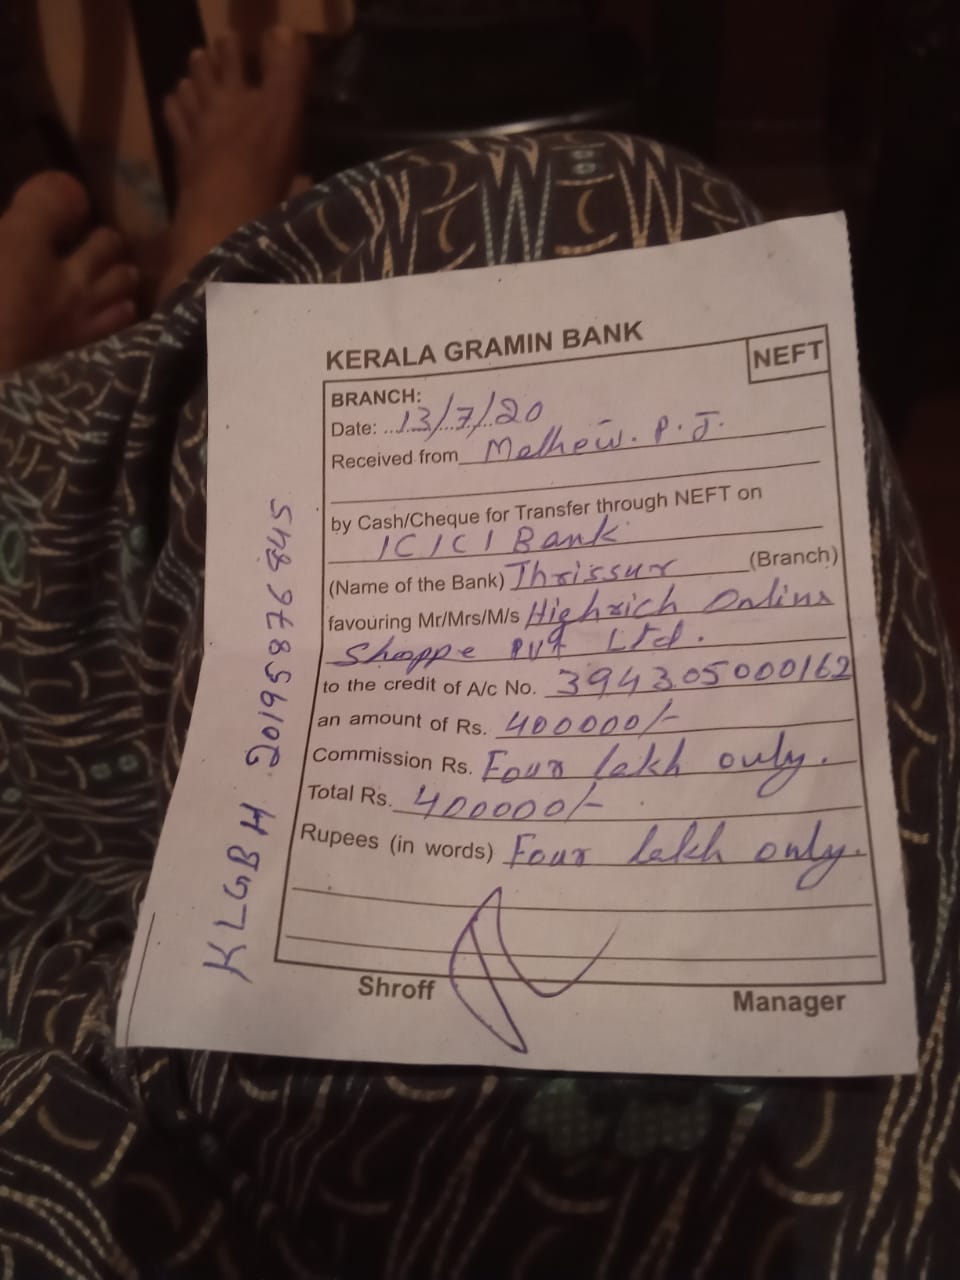 KERALA GRAMIN BANK
NEFT
BRANCH:
Date: 13/7/20
Received from Mathew. P. J.
by Cash/Cheque for Transfer through NEFT on
ICICI Bank
(Name of the Bank) Thrissur (Branch)
favouring Mr/Mrs/M/s Highrich Online
Shoppe Pvt Ltd.
to the credit of A/c No. 394305000162
an amount of Rs. 400000/-
Commission Rs. Four lakh only.
Total Rs. 400000/-
Rupees (in words) Four lakh only.
Shroff
Manager
KLGBH 20195876845